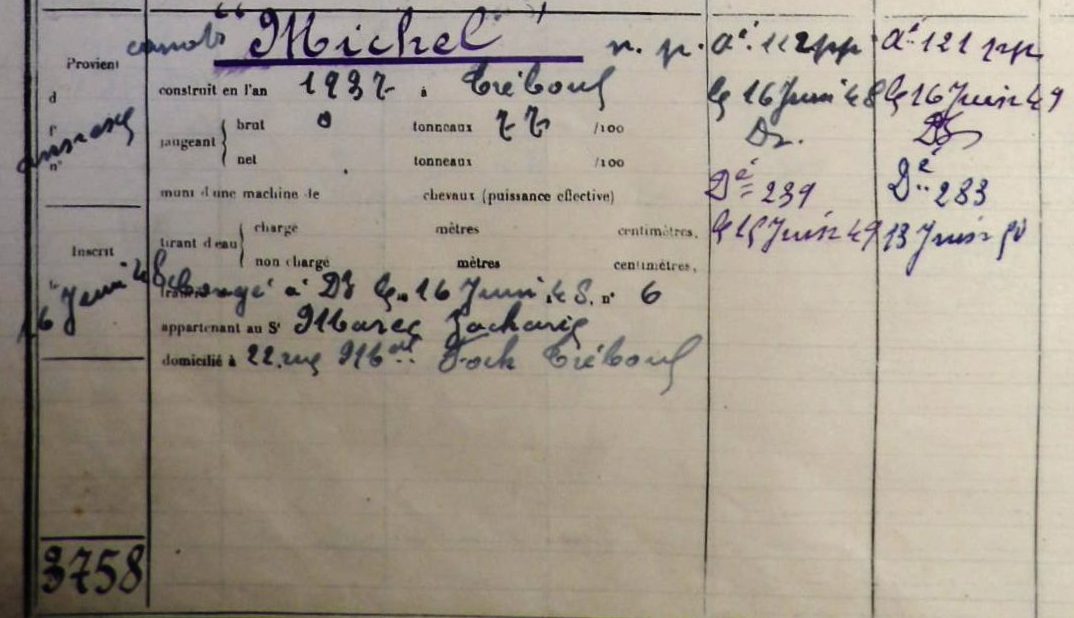 canot "Michel" n. p.
Provient
d
l'
n°
annexe
construit en l'an 1937 à Tréboul
jaugeant { brut 0 tonneaux 77 /100
net tonneaux /100
muni d'une machine de chevaux (puissance effective)
tirant d'eau { chargé mètres centimètres,
non chargé mètres centimètres,
Inscrit
le 16 Juin 48
francisé à Dz le 16 Juin 48. n° 6
appartenant au Sr Marec Zacharie
domicilié à 22 rue Mal Foch Tréboul
3758
Aé. 112 pp
le 16 Juin 48
Dz.
Dé = 239
le 15 Juin 49
Aé. 121 pp
le 16 Juin 49
Dz
Dé.. 283
13 Juin 50